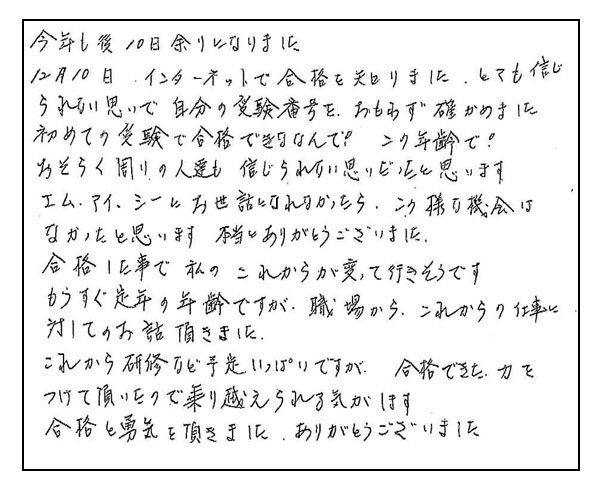 今年も後10日余りになりました
12月10日、インターネットで合格を知りました、とても信じ
られない思いで自分の受験番号を、おもわず確かめました
初めての受験で合格できるなんて? この年齢で?
おそらく周りの人達も信じられない思いだったと思います
エム・アイ・シーにお世話になれなかったら、この様な機会は
なかったと思います 本当にありがとうございました。
合格した事で私のこれからが変って行きそうです
もうすぐ定年の年齢ですが、職場から、これからの仕事に
対してのお話頂きました。
これから研修など予定いっぱいですが、合格できた、力を
つけて頂いたので乗り越えられる気がします
合格と勇気を頂きました、ありがとうございました